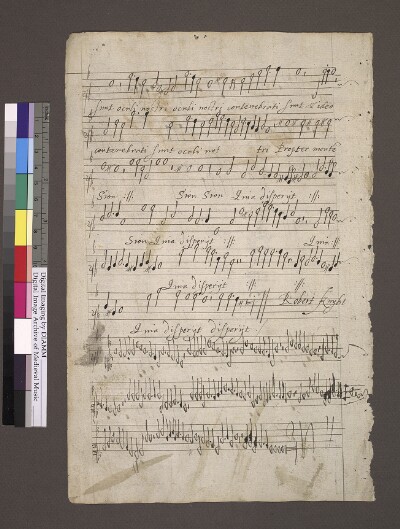 sunt oculi nostri oculi nostri contenebrati sunt Ideo
contenebrati sunt oculi nos tri Propter monte
Sion :||: Sion Sion Q ma disperyt :||:
Sion Q ma disperyt :||: Q ma :||:
Q ma disperyt :||: :||:
Robert Knyht
Q ma disperyt disperyt
Digital Imaging by DIAMM
Digital Image Archive of Medieval Music